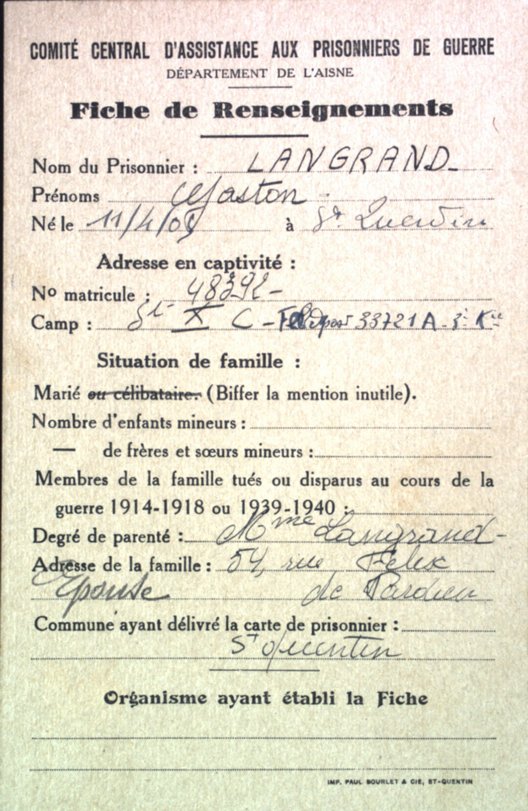 COMITÉ CENTRAL D'ASSISTANCE AUX PRISONNIERS DE GUERRE
DÉPARTEMENT DE L'AISNE
Fiche de Renseignements
Nom du Prisonnier : LANGRAND
Prénoms Gaston
Né le 11/4/08 à St Quentin
Adresse en captivité :
No matricule : 48392
Camp : St X C - 33721 A - 3e Kie
Situation de famille :
Marié ou célibataire. (Biffer la mention inutile).
Nombre d'enfants mineurs :
— de frères et sœurs mineurs :
Membres de la famille tués ou disparus au cours de la
guerre 1914-1918 ou 1939-1940 :
Degré de parenté : Mme Langrand
Adresse de la famille : 54, rue Felix
Epouse de Pardieu
Commune ayant délivré la carte de prisonnier :
St Quentin
Organisme ayant établi la Fiche
IMP. PAUL BOURLET & CIE, ST-QUENTIN